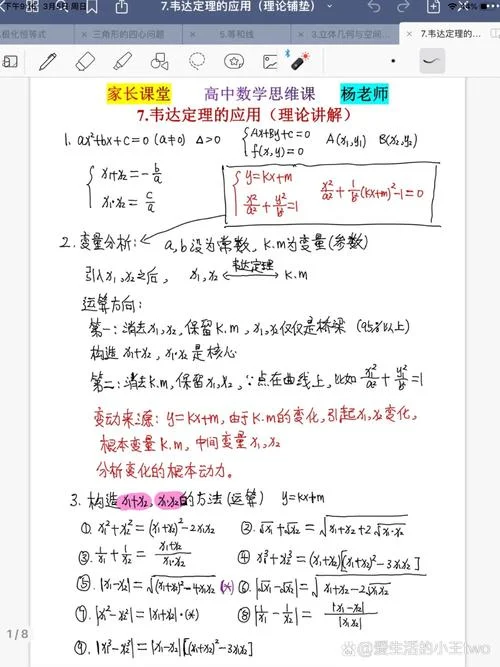 7.韦达定理的应用（理论铺垫）
极化恒等式
三角形的四心问题
5.等和线
3.立体几何与空间...
7.韦达定理的...
家长课堂 高中数学思维课 杨老师
7.韦达定理的应用（理论讲解）
1. ax²+bx+c=0 (a≠0) Δ>0 { Ax+By+c=0 f(x,y)=0 A(x₁,y₁) B(x₂,y₂)
{ x₁+x₂=-b/a
x₁·x₂=c/a
{ y=kx+m
x²/a²+y²/b²=1 x²/a²+1/b²(kx+m)²-1=0
2. 变量分析: a,b设为常数, k.m为变量(参数)
引入x₁,x₂之后, x₁,x₂ ⟷ 韦达定理 k.m
运算方向:
第一:消去x₁,x₂,保留k.m, x₁,x₂仅仅是桥梁 (95%以上)
构造 x₁+x₂, x₁·x₂是核心
第二:消去k.m,保留x₁,x₂, ∵点在曲线上,比如 x₁²/a²+y₁²/b²=1
变动来源: y=kx+m,由于k.m的变化,引起x₁,x₂变化,
根本变量k.m,中间变量x₁,x₂
分析变化的根本动力。
3. 构造x₁+x₂, x₁x₂的方法(运算) y=kx+m
①. x₁²+x₂²=(x₁+x₂)²-2x₁x₂ ②. √x₁+√x₂=√(x₁+x₂+2√(x₁·x₂))
③. 1/x₁+1/x₂=(x₁+x₂)/(x₁·x₂) ④ x₁³+x₂³=(x₁+x₂)[(x₁+x₂)²-3x₁x₂]
⑤ |x₁-x₂|=√((x₁+x₂)²-4x₁x₂) (*) ⑥ |√x₁-√x₂|=√(x₁+x₂-2√(x₁x₂))
⑦. |x₁²-x₂²|=|x₁+x₂|·(*) ⑧ |1/x₁-1/x₂|=|x₁-x₂|/|x₁x₂|
⑨. |x₁³-x₂³|=|x₁-x₂|[(x₁+x₂)²-3x₁x₂]
1/8
@爱生活的小王two